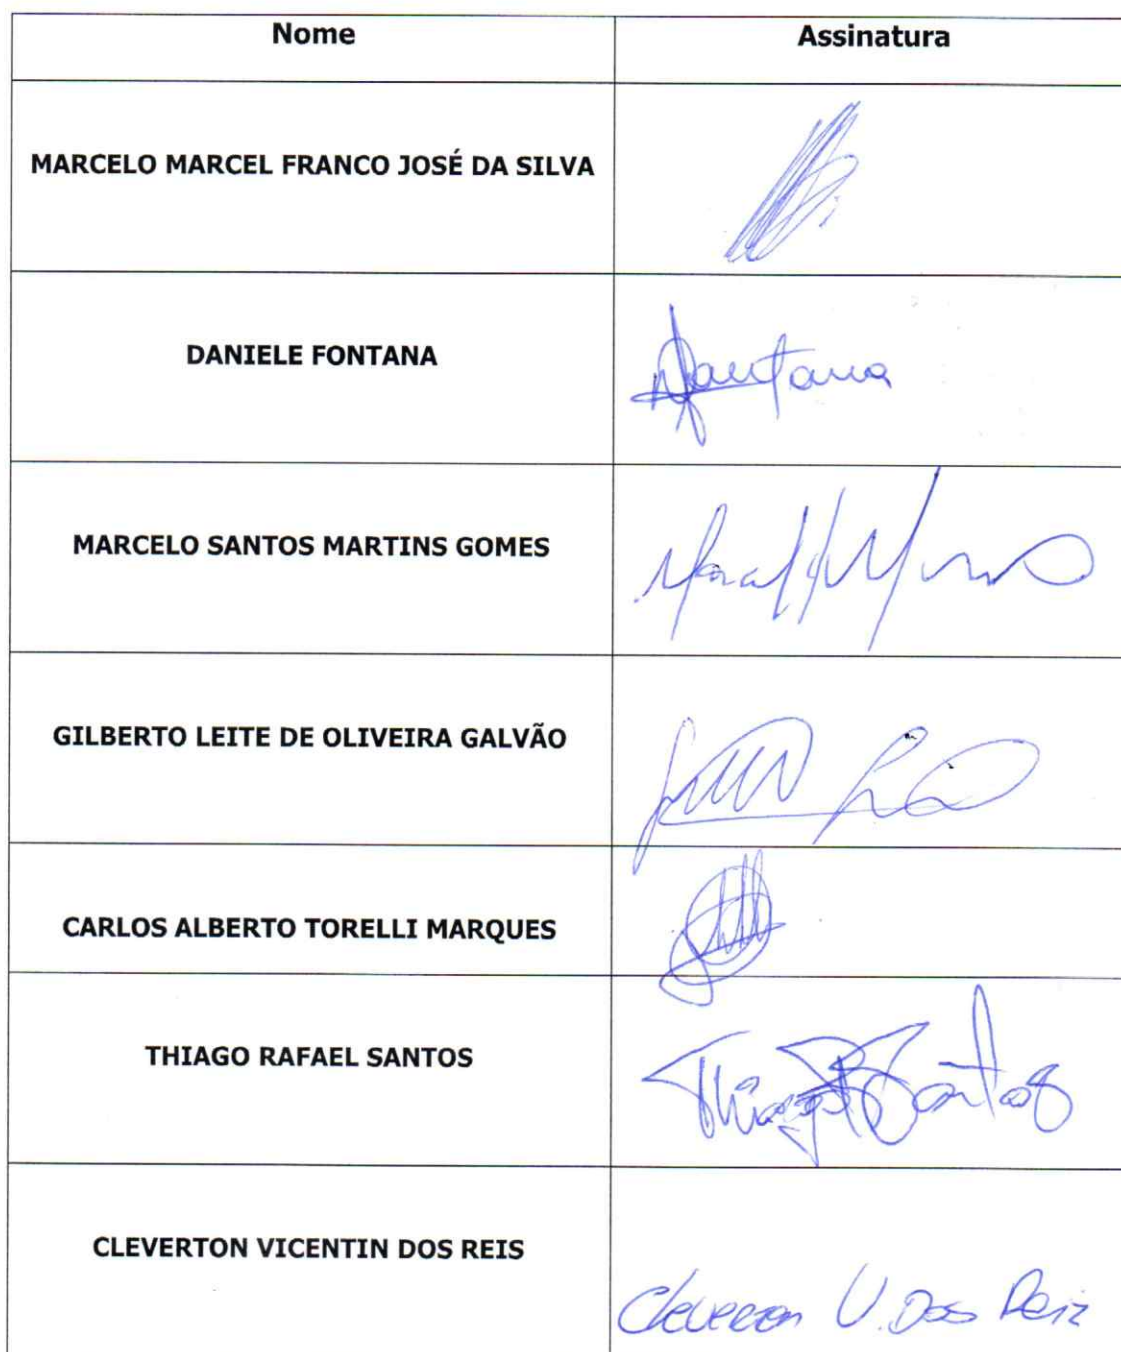 Nome Assinatura
MARCELO MARCEL FRANCO JOSÉ DA SILVA
DANIELE FONTANA
MARCELO SANTOS MARTINS GOMES
GILBERTO LEITE DE OLIVEIRA GALVÃO
CARLOS ALBERTO TORELLI MARQUES
THIAGO RAFAEL SANTOS
Thiago R Santos
CLEVERTON VICENTIN DOS REIS
V. Dos Reiz